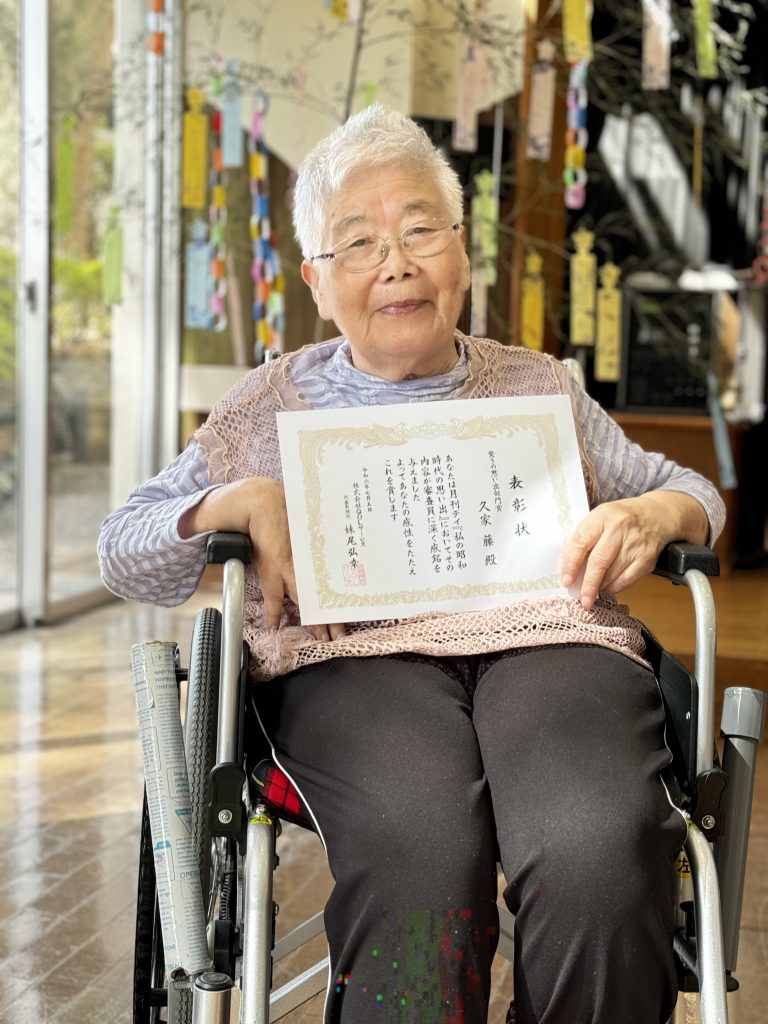 表彰状
驚きの思い出部門賞
久家 藤 殿
あなたは月刊デイ『私の昭和
時代の思い出』においてその
内容が審査員に深く感銘を
与えました
よってあなたの感性をたたえ
これを賞します
令和六年七月
株式会社QOLサービス
代表取締役 妹尾弘幸
左